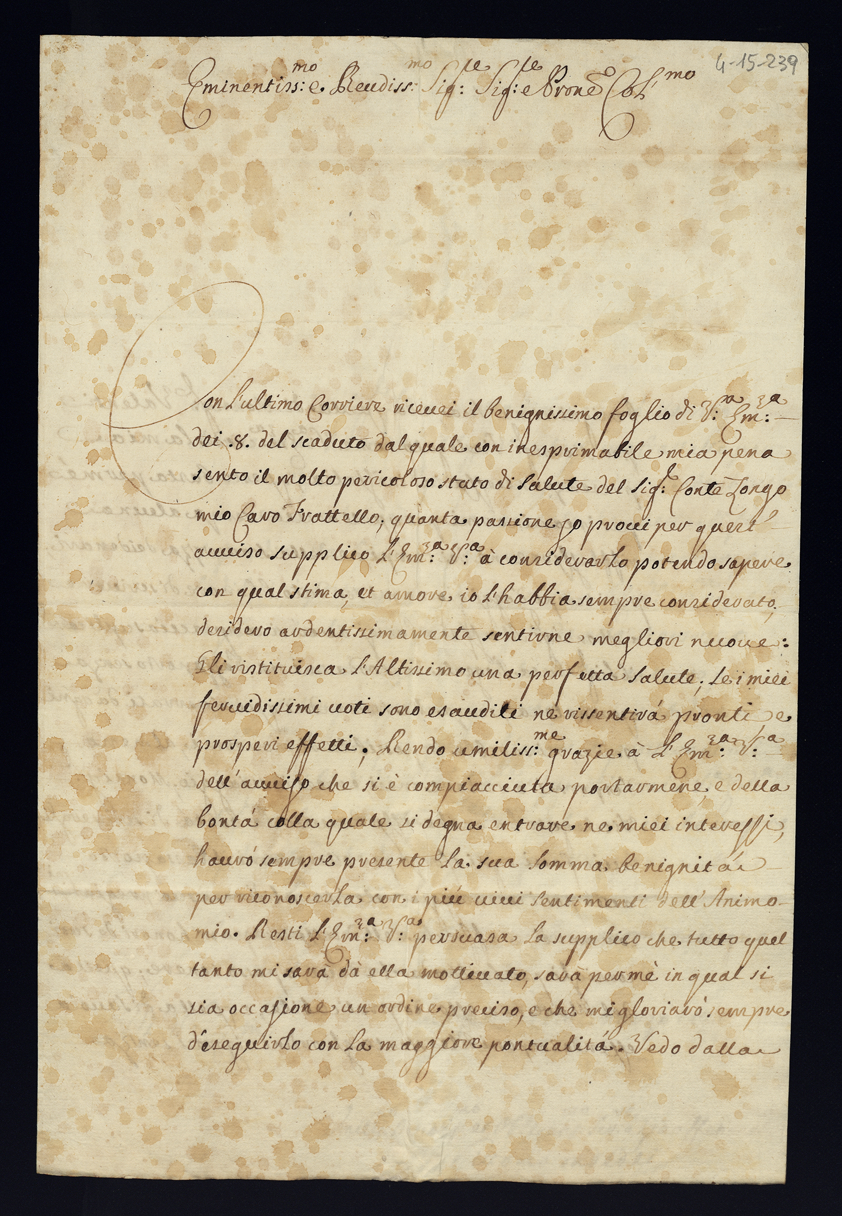 4-15-239
Eminentiss:mo e Reudiss:mo Sig:re Sig:re e Prone Col:mo
Con L'ultimo Corriere riceuei il benignissimo foglio di V:a Em:za
dei .8. del scaduto dal quale con inesprimabile mia pena
sento il molto pericoloso stato di Salute del Sig:r Conte Longo
mio Caro Frattello, quanta passione io proui per quest'
auuiso supplico L'Em:za V:a à considerarlo potendo sapere
con qual stima, et amore io L'habbia sempre considerato,
desidero ardentissimamente sentirne megliori nuoue:
Gli ristituisca L'Altissimo una perfetta Salute; Se i miei
feruidissimi uoti sono esauditi ne rissentirá pronti e
prosperi effetti; Rendo umiliss:me grazie à L'Em:za V:a
dell'auuiso che si è compiacciuta portarmene, e della
bontá colla quale si degna entrare ne miei interessi,
hauró sempre presente La sua Somma benignitá
per riconoscerla con i piú uiui Sentimenti dell'Animo
mio. Resti L'Em:za V:a persuasa La supplico che tutto quel
tanto mi sará dà ella mottiuato, sará per mè in qual si
sia occasione un ordine preciso, e che mi gloriaró sempre
d'eseguirlo con La maggiore pontualitá. Vedo dalla